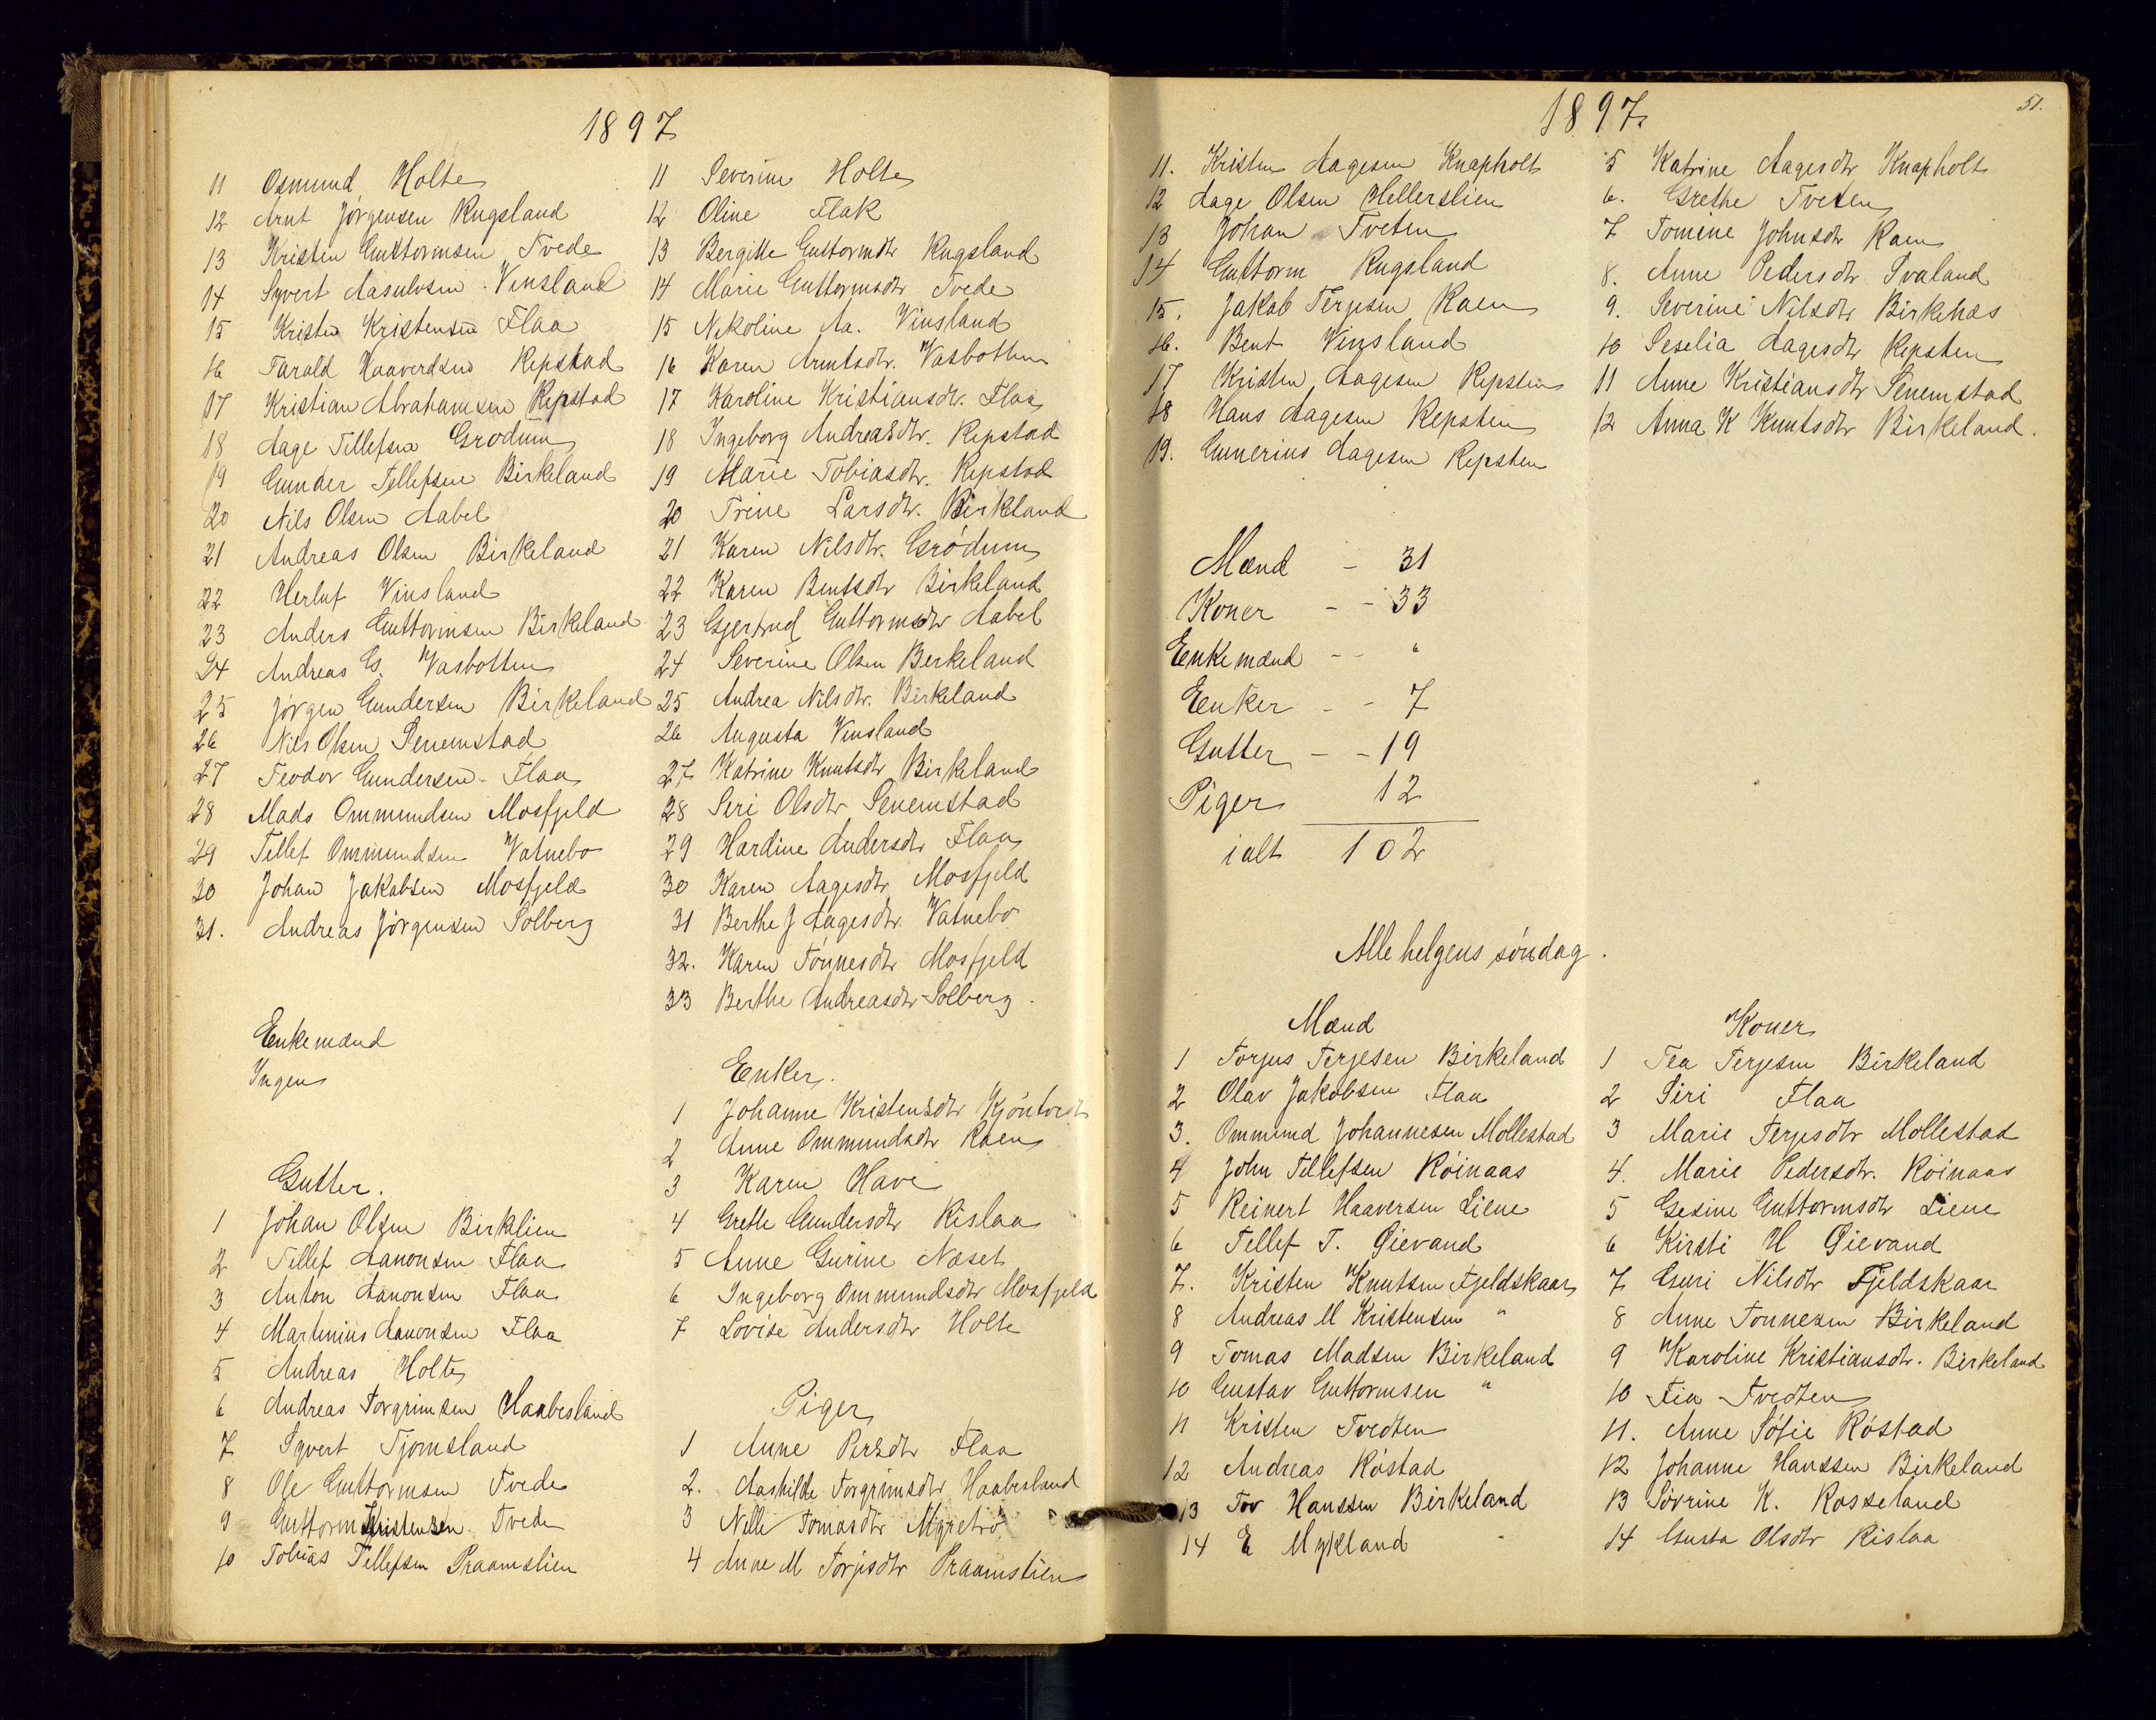 1897
11 Osmund Holte
12 Arnt Jørgensen Rugsland
13 Kristen Guttormsen Tvede
14 Syvert Aasulvsen Vinsland
15 Kristen Kristensen Flaa
16 Tarald Haaverdsen Repstad
17 Kristian Abrahamsen Repstad
18 Aage Tellefsen Grødum
19 Gunder Tellefsen Birkeland
20 Nils Olsen Aabel
21 Andreas Olsen Birkeland
22 Herluf Vinsland
23 Anders Guttormsen Birkeland
24 Andreas G. Vasbotten
25 Jørgen Gundersen Birkeland
26 Nils Olsen Senemstad
27 Teodor Gundersen Flaa
28 Mads Ommundsen Mosfjeld
29 Tellef Ommundsen Vatnebo
30 Johan Jakobsen Mosfjeld
31. Andreas Jørgensen Solberg
Enkemænd
Ingen
Gutter.
1 Johan Olsen Birklien
2 Tellef Aanonsen Flaa
3 Anton Aanonsen Flaa
4 Martinius Aanonsen Flaa
5 Andreas Holte
6 Andreas Torgrimsen Haabesland
7 Syvert Tjomsland
8 Ole Guttormsen Tvede
9 Guttorm Kristensen Tvede
10 Tobias Tellefsen Praamslien
11 Severine Holte
12 Oline Flak
13 Bergitte Guttormdtr Rugsland
14 Marie Guttormsdtr Tvede
15 Nikoline Aa. Vinsland
16 Karen Arntsdtr. Vasbotten
17 Karoline Kristiansdtr. Flaa
18 Ingeborg Andreasdtr. Repstad
19 Marie Tobiasdtr. Repstad
20 Trine Larsdtr. Birkeland
21 Karen Nilsdtr. Grødum
22 Karen Bentsdtr Birkeland
23 Gjertrud Guttormsdtr Aabel
24 Severine Olsen Berkeland
25 Andrea Nilsdtr. Birkeland
26 Augusta Vinsland
27 Katrine Knutsdtr Birkeland
28 Seri Olsdtr Senemstad
29 Hardine Andersdtr Flaa
30 Karen Aagesdtr Mosfjeld
31 Berthe J Aagesdtr. Vatnebo
32. Karen Tønnesdtr Mosfjeld
33 Berthe Andreasdtr Solberg.
Enker.
1 Johanne Kristensdtr
2 Anne Ommundsdtr Raen
3 Karen Have
4 Grethe Gundersdtr Rislaa
5 Anne Gurine Næset
6 Ingeborg Ommundsdtr Mosfjeld
7 Lovise Andersdtr Holte
Piger
1 Anne Persdtr Flaa
2. Aashilde Torgrimsdtr Haabesland
3 Nelle Tomasdtr
4 Anne M Torjusdtr Praamslien
1897. 51.
11. Kristen Aagesen Knapholt
12 Aage Olsen Hellerslien
13 Johan Tveten
14 Guttorm Rugsland
15. Jakob Terjesen Raen
16. Bent Vinsland
17 Kristen Aagesen Repsten
18 Hans Aagesen Repsten
19. Gunerius Aagesen Repsten
5 Katrine Aagesdtr Knapholt
6. Grethe Tveten
7 Tomine Johnsdtr Raen
8. Anne Pedersdtr Svaland
9. Severine Nilsdtr Birkenæs
10 Seselia Aagesdtr Repsten
11 Anne Kristiansdtr Senemstad
12 Anna K Knutsdtr Birkeland.
Mænd - 31
Koner - - 33
Enkemænd - - "
Enker - - 7
Gutter - - 19
Piger 12
ialt 102
Allehelgens søndag.
Mænd
1 Torjus Terjesen Birkeland
2 Olav Jakobsen Flaa
3. Ommund Johannesen Mollestad
4 John Tellefsen Røinaas
5 Reinert Haaversen Liene
6 Tellef T. Gievand
7. Kristen Knutsen Fjeldskaar
8 Andreas M Kristensen "
9 Tomas Madsen Birkeland
10 Gustav Guttormsen "
11 Kristen Tvedten
12 Andreas Røstad
13 Tov Hanssen Birkeland
14 E Mykland
Koner
1 Tea Terjesen Birkeland
2 Siri Flaa
3 Marie Terjesdtr Mollestad
4. Marie Pedersdtr. Røinaas
5 Gesine Guttormsdtr Liene
6 Kirsti H Gievand
7 Guri Nilsdtr Fjeldskaar
8 Anne Tønnesen Birkeland
9 Karoline Kristiansdtr. Birkeland
10 Tia Tvedten
11. Anne Sofie Røstad
12 Johanne Hanssen Birkeland
13 Søvrine K. Rosseland
14 Gusta Olsdtr Rislaa